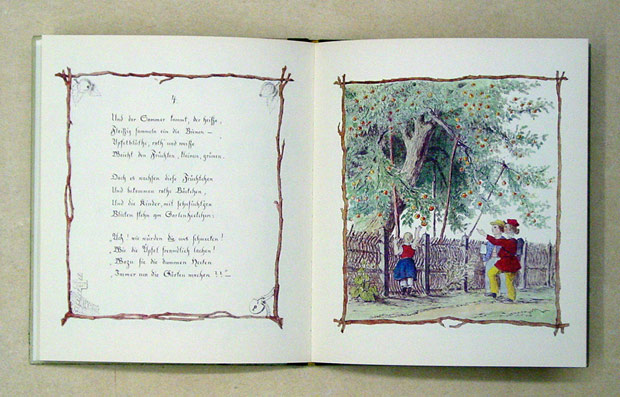 4.
Und der Sommer kommt, der heiße,
Fleißig sammeln ein die Bienen –
Apfelblüthe, roth und weiße
Weicht den Früchten, kleinen, grünen.
Doch es wachsen diese Früchtchen
Und bekommen rothe Bäckchen,
Und die Kinder, mit sehnsüchtgen
Blicken stehn am
„Ach! wir würden die uns schmecken!
„Wie die Äpfel freundlich lachen!
„Wozu sie die dummen
„Immer um die Gärten machen?!"